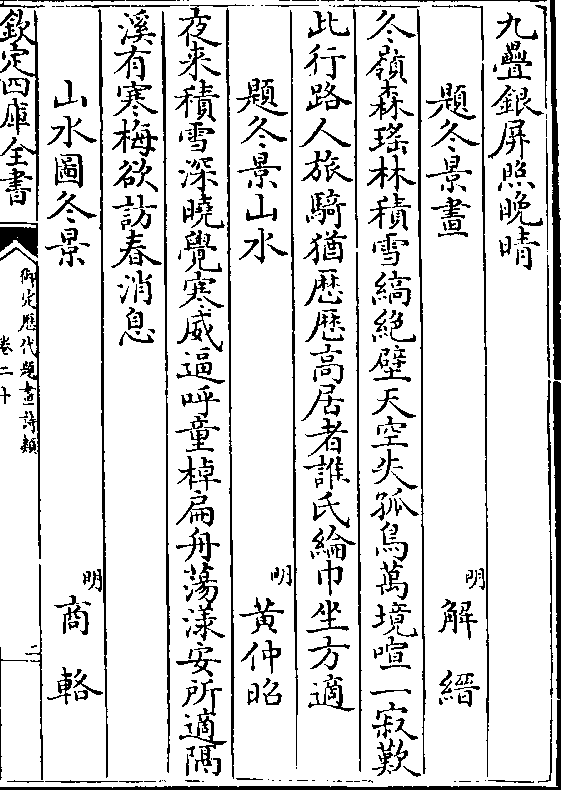 九疊銀屏照晚晴
題冬景畫 明 解縉
冬嶺森瑤林積雪縞絶壁天空失孤鳥萬境喧一寂歎
此行路人旅騎猶歴歴高居者誰氏綸巾坐方適
題冬景山水 明 黄仲昭
夜来積雪深曉覺寒威逼呼童棹扁舟蕩漾安所適隔
溪有寒梅欲訪春消息
山水圖冬景 明 商輅
欽定四庫全書
御定歴代題畫詩類
卷二十
二